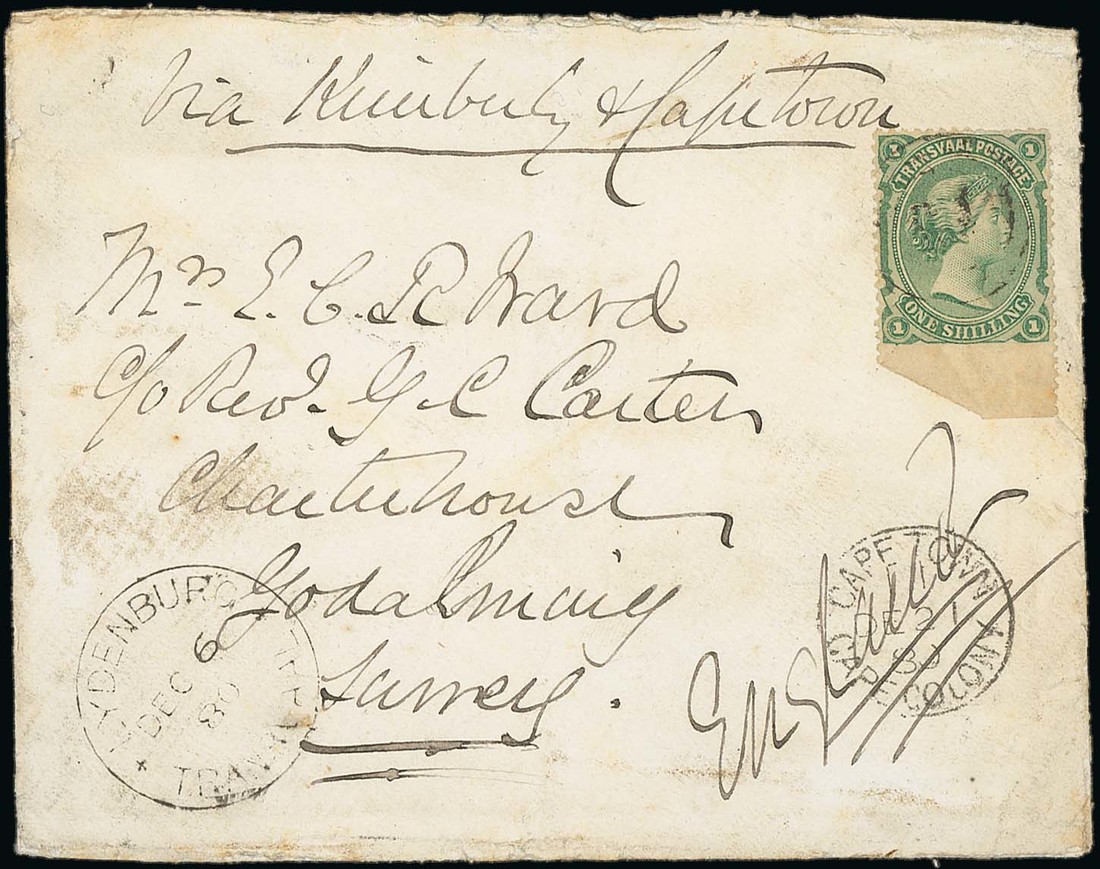 Via Kimberly & Capetown
1 TRANSVAAL POSTAGE 1
1 ONE SHILLING 1
Mrs E. C. R Ward
C/o Revd. G C Carter
Charterhouse
Godalming
Surrey.
England
LYDENBURG
DEC 6
80
TRANSVAAL
CAPE TOWN
DE 21
80
COLONY